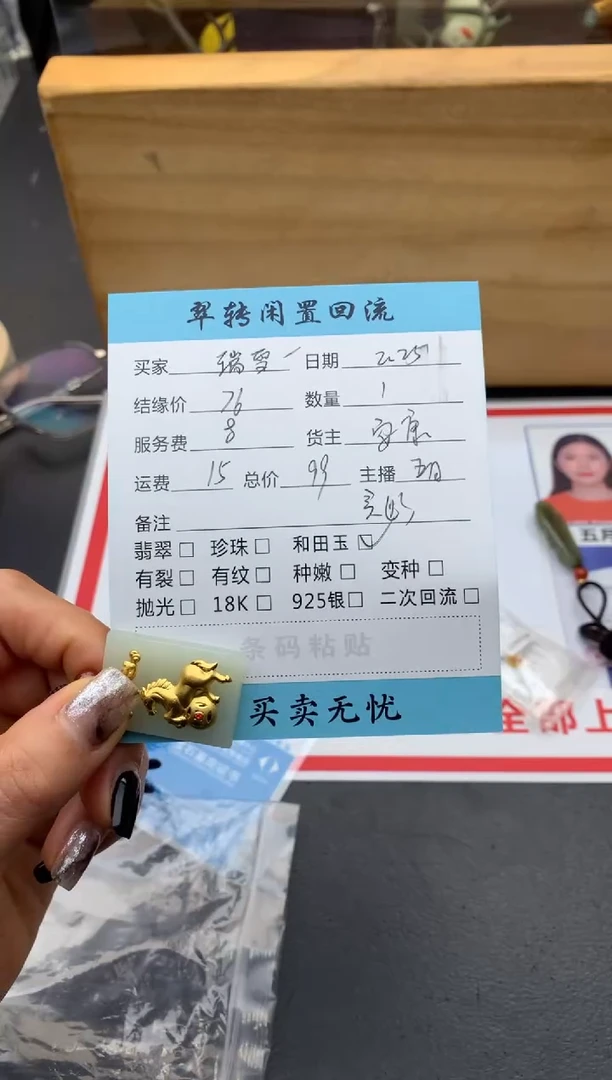 翠转闲置回流
买家 瑞雪 日期 2.25
结缘价 76 数量 1
服务费 8 货主 安康
运费 15 总价 99 主播 五月
备注
翡翠□ 珍珠□ 和田玉☑
有裂□ 有纹□ 种嫩□ 变种□
抛光□ 18K□ 925银□ 二次回流□
条码粘贴
买卖无忧
五月
全部上